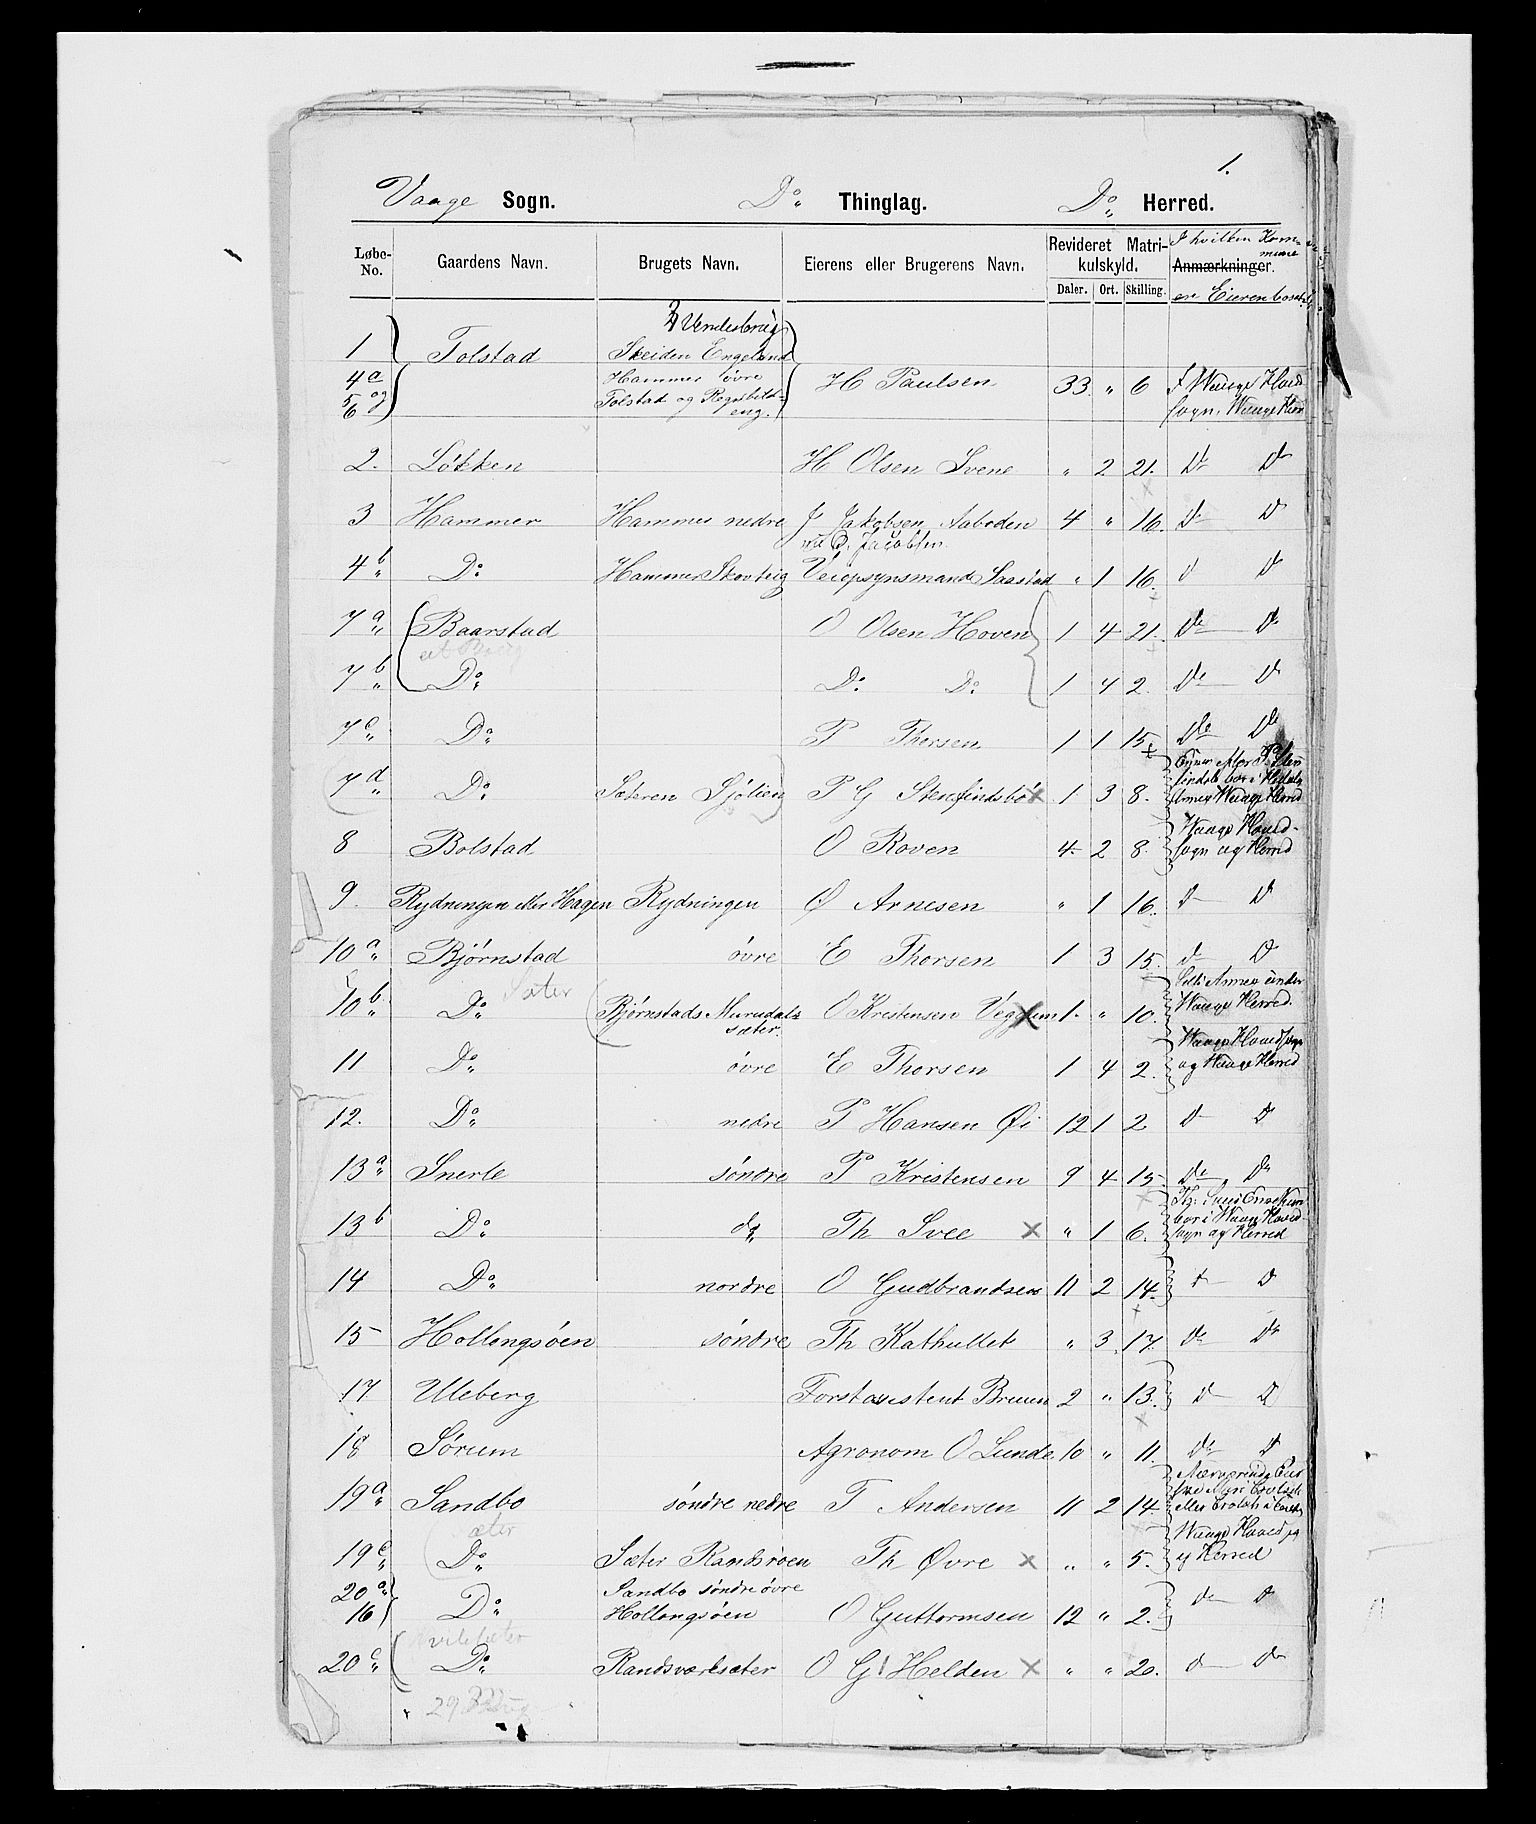 1.
Vaage Sogn. Do Thinglag. Do Herred.
Løbe-No. Gaardens Navn. Brugets Navn. Eierens eller Brugerens Navn. Revideret Matrikulskyld. Daler. Ort. Skilling. Anmærkninger. I hvilken Kommune er Eieren bosat
1 Tolstad Underbrug Skeiden Engeland
4a 5 og 6 Hammer øvre Tolstad og eng. H Paulsen 33 " 6 I Waage Hovedsogn, Waage Herred
2. Løkken H Olsen Svene " 2 21. Do Do
3 Hammer Hammer nedre J Jakobsen Aaboden 4 " 16. Do Do
Jacobsen
4b Do Hammer Skovteig Veiopsynsmand Saastad " 1 16. D D
7a Baarstad O Olsen Hoven 1 4 21. Do Do
7b Do Do Do 1 4 2. Do Do
7c Do P Thorsen 1 1 15. Do Do
7d Do Sæteren Sjølien P G Stenfindsbø x 1 3 8.
8 Bolstad O Roven 4. 2 8. Waage Hovedsogn og Herred
9. Rydningen eller Hagen Rydningen Ø Arnesen " 1 16. D D
10a Bjørnstad øvre E Thorsen 1 3 15. D D
Sæter
10b Do Bjørnstads Murudalssæter. O Kristensen x 1. " 10. Annex under Waage Herred.
11 Do øvre E Thorsen 1 4 2. Waage Hovedsogn og Waage Herred
12. Do nedre P Hansen Øi 12 1 2 D D
13a Snerle søndre P Kristensen 9 4 15. Do Do
13b Do do Th Svee x " 1 6. bor i Waage Hovedsogn og Herred
14 Do nordre O Gudbrandsen 11 2 14. D D
15 Hollongsøen søndre Th Kathullet " 3 17. Do Do
17 Uleberg Forstassistent Bruun 2 " 13. D D
18 Sørum Agronom O Lunde 10 " 11. Do D
19a Sandbo søndre nedre T Andersen 11 2 14.
sæter
19c Do Sæter Randsroen Th Øvre x " " 5. Waage Hovedsogn og Herred
20a 16 Do Sandbo søndre øvre Hollongsøen O Guttormsen 12 " 2. D D
20c Do Randsværksæter O G Helden x " " 20. D Do
29